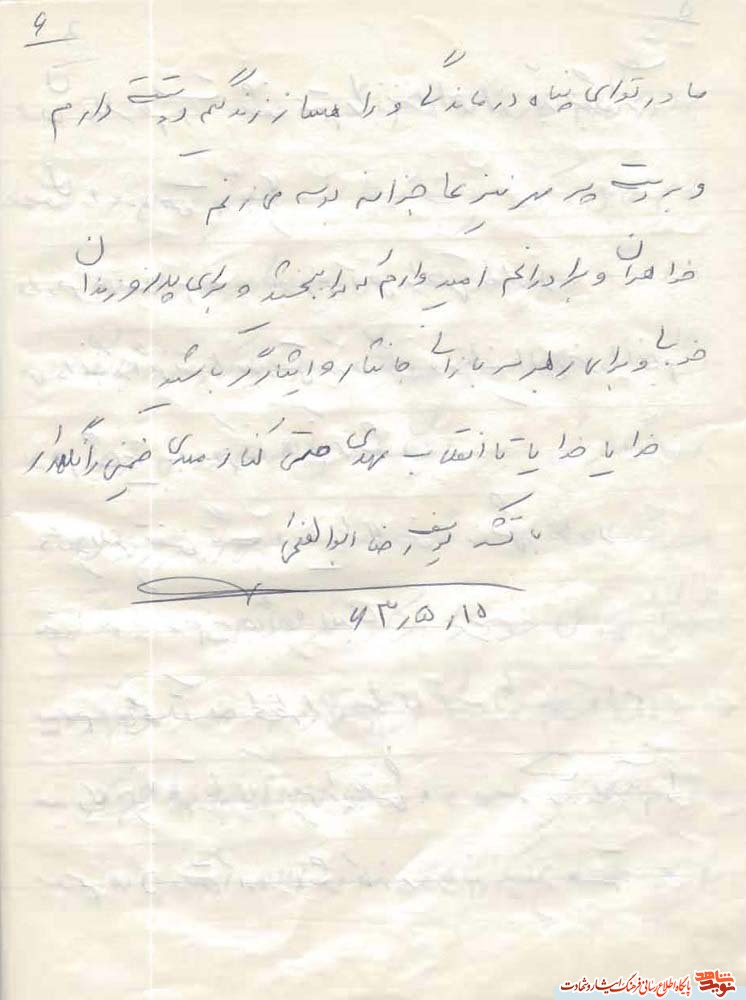 ۶
مادر تو ای پناه درماندگی و راهساز زندگیم دوستت دارم
و بر دست پر مهر نیز عاجزانه بوسه می زنم
خواهران و برادرانم امیدوارم که مرا ببخشید و برای پدر فرزندان
خوبی و برای رهبر سربازانی جانثار و ایثارگر باشید
خدایا خدایا تا انقلاب مهدی حتی کنار مهدی خمینی را نگهدار
با تشکر یوسف رضا ابوالفتحی
۶۳٫۵٫۱۵
نوید شاهد
پایگاه اطلاع رسانی فرهنگ ایثار و شهادت